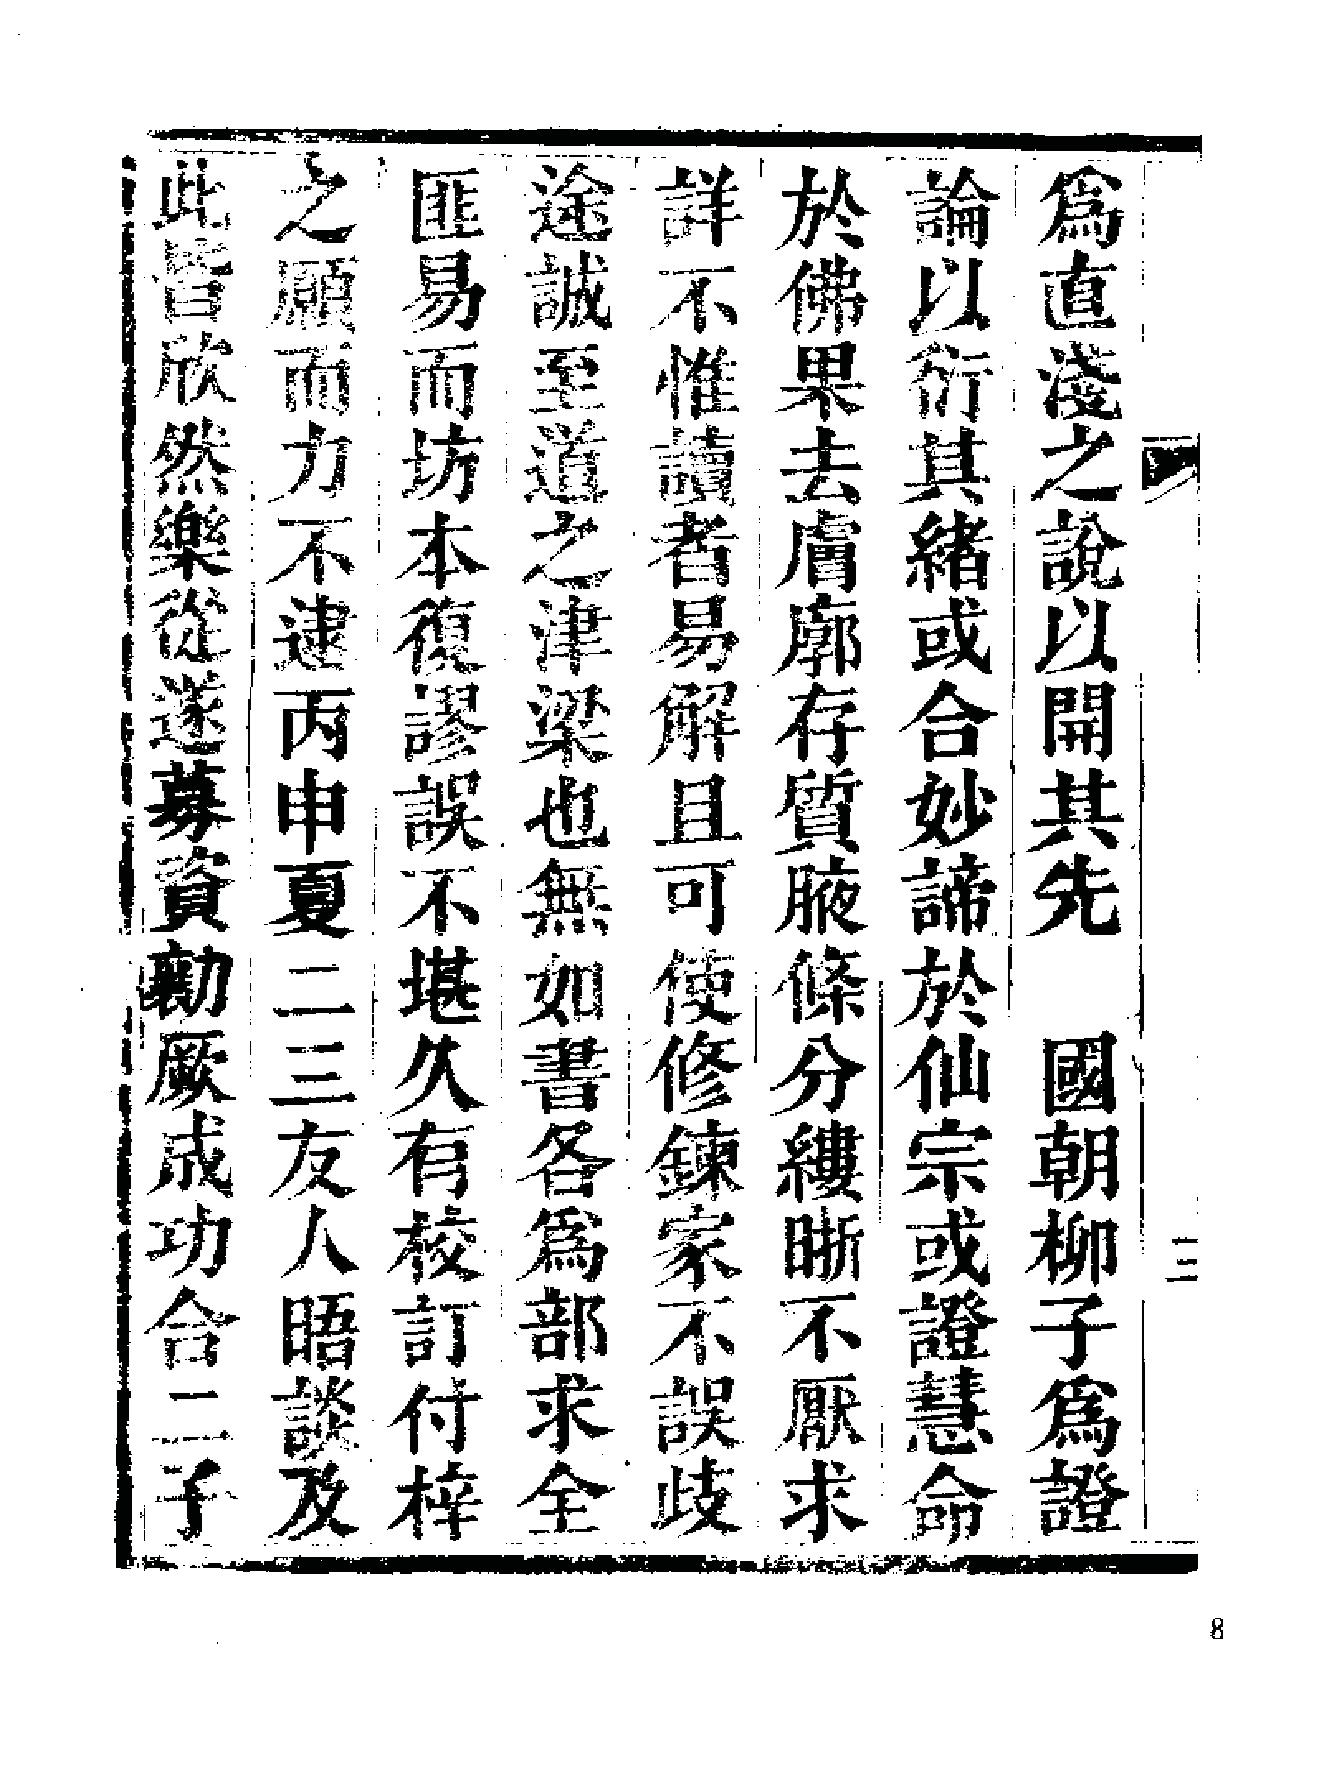 爲直淺之說以開其先　國朝柳子爲證
論以衍其緒或合妙諦於仙宗或證慧命
於佛果去膚廓存質腋條分縷晰不厭求
詳不惟讀者易解且可使修鍊家不誤歧
途誠至道之津梁也無如書各爲部求全
匪易而坊本復謬誤不堪久有校訂付梓
之願而力不逮丙申夏二三友人晤談及
此皆欣然樂從遂募資勷厥成功合二子
二
8